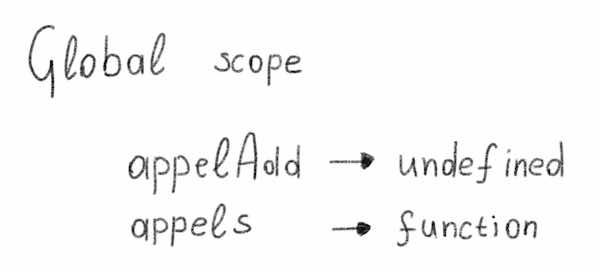 Global scope
appelAdd → undefined
appels → function